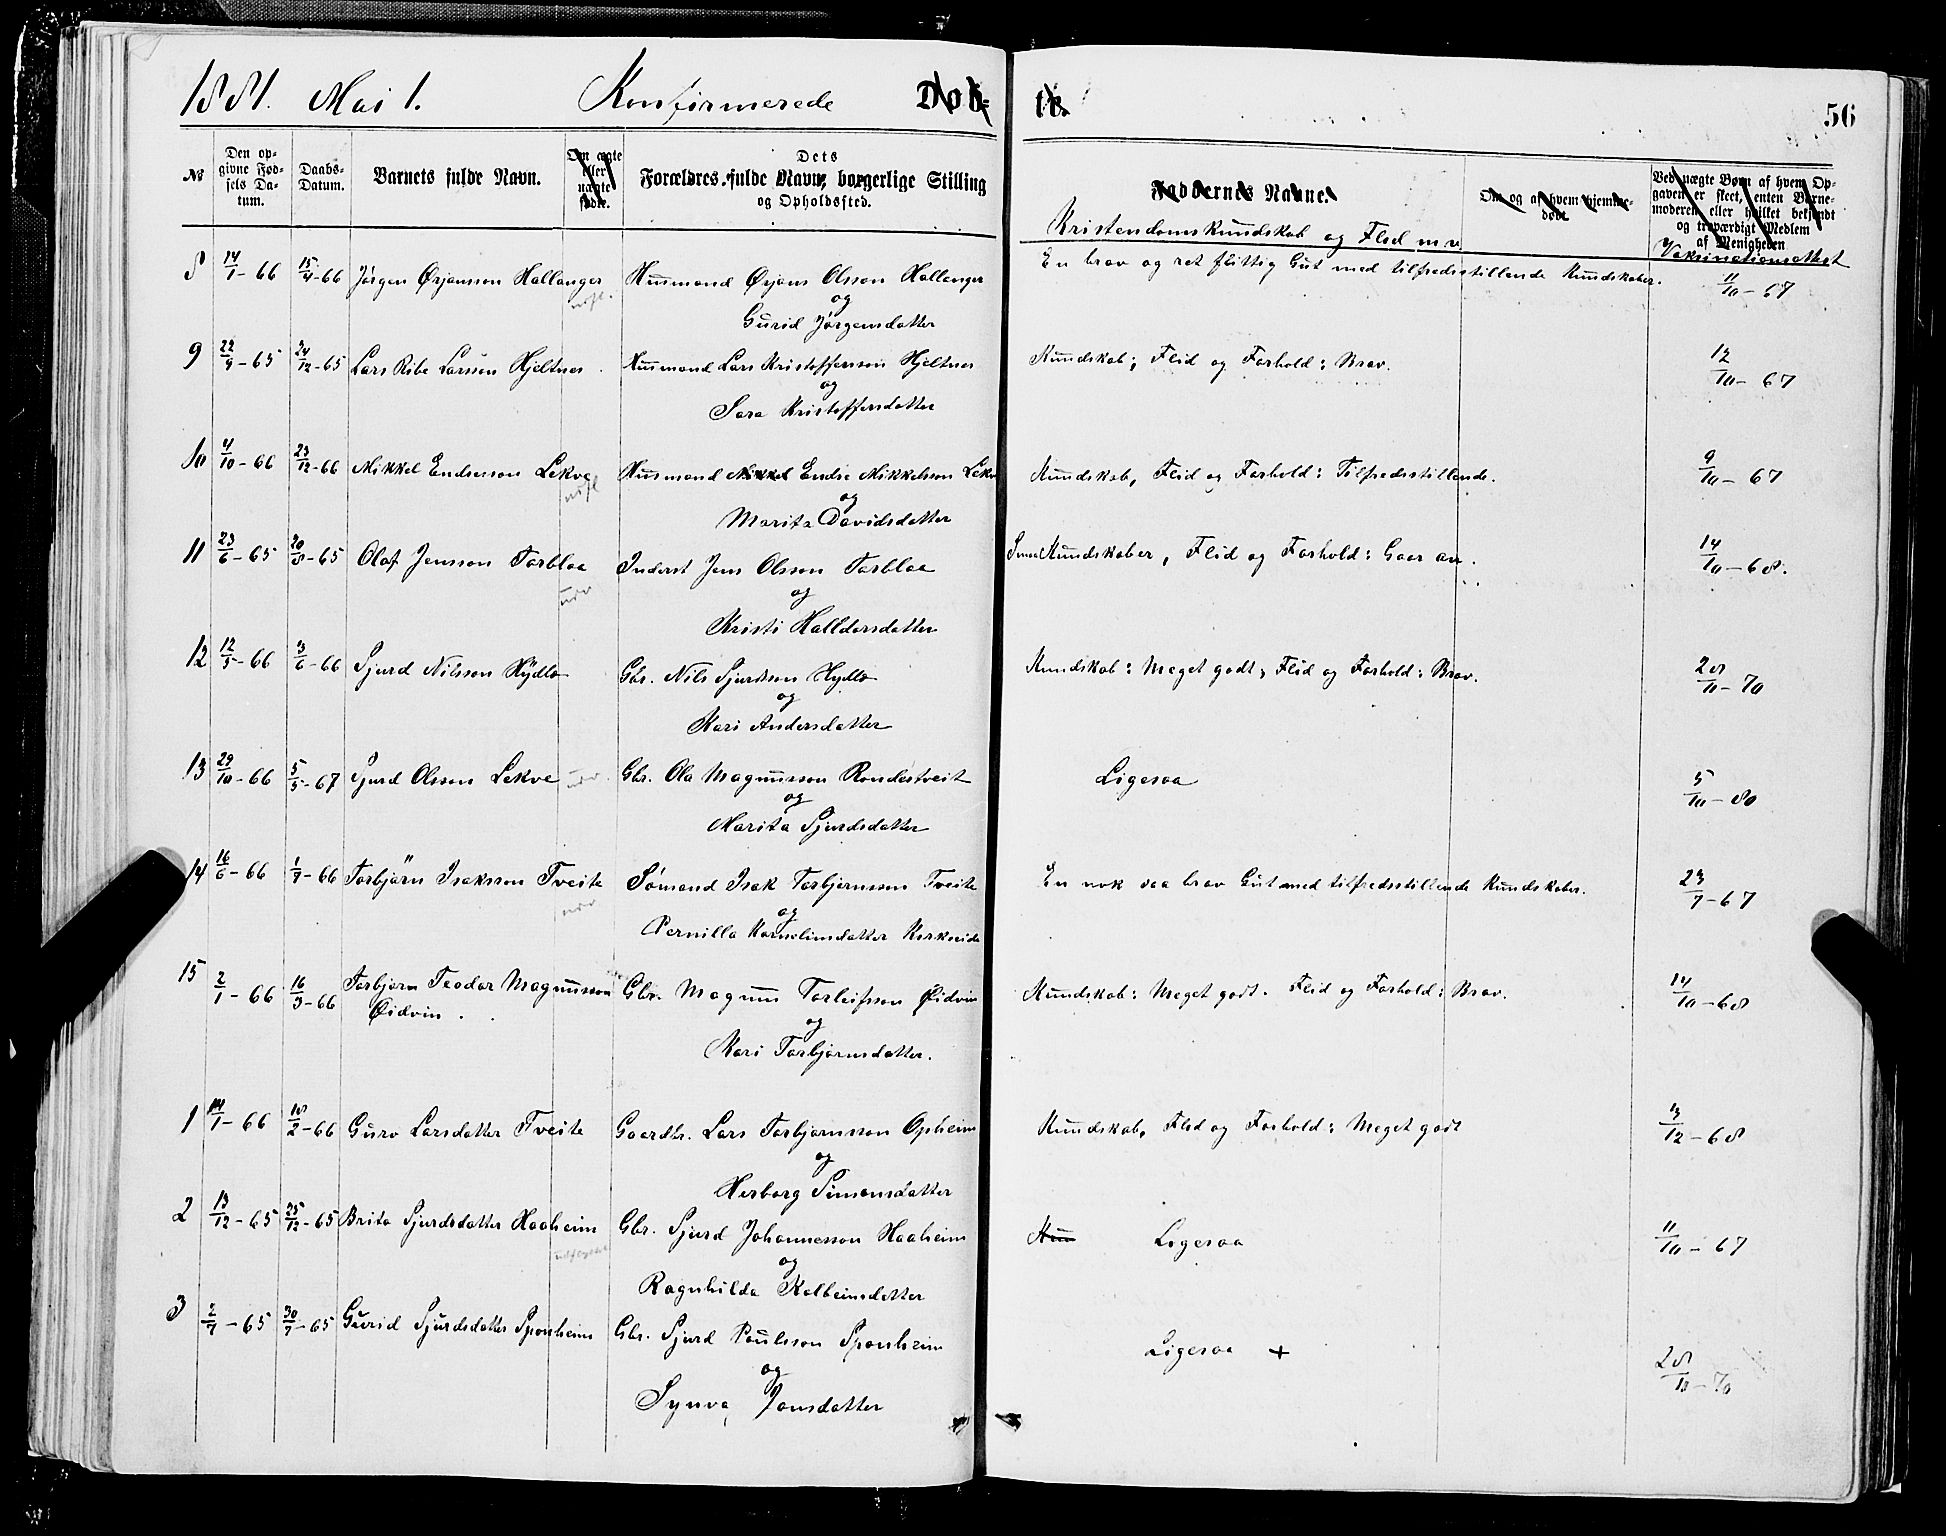 1881. Mai 1. Konfirmerede Døb- te. 56
№ Den opgivne Fødsels Datum. Daabs-Datum. Barnets fulde Navn. Om ægte eller uægte født. Dets Forældres fulde Navn, borgerlige Stilling og Opholdssted. Faddernes Navne. Om og af hvem hjemmedøbt Ved uægte Børn af hvem Opgaven er skeet, enten Barnemoderen eller hvilket bekjendt og troværdigt Medlem af Menigheden
Kristendomskundskab og Flid m v. Vaksinationsattest
8 14/1-66 15/4-66 Jørgen Ørjansson Hallanger Husmand Ørjans Olsson Hallanger En brav og ret flittig Gut med tilfredsstillende Kundskaber. 11/10-67
og
Gurid Jørgensdatter
9 22/9-65 24/12-65 Lars Ribe Larsson Hjeltnes Husmand Lars Kristoffersson Hjeltnes Kundskab, Flid og Forhold: Brav. 12/10-67
og
Sara Kristoffersdatter
10 4/10-66 23/12-66 Mikkel Endresson Lekve Husmand Mikkel Endre Mikkelsson Lekv Kundskab, Flid og Forhold: Tilfredsstillende. 9/10-67
og
Marita Davidsdatter
11 23/6-65 20/8-65 Olaf Jensson Torblaa Inderst Jens Olsson Torblaa Kundskaber, Flid og Forhold: Gaar an. 14/10-68.
og
Kristi Halldorsdatter
12 12/5-66 3/6-66 Sjurd Nilsson Hydlo Gbr. Nils Sjurdsson Hydlo Kundskab: Meget godt, Flid og Forhold: Brav. 28/11-70
og
Kari Andersdatter
13 29/10-66 5/5-67 Sjurd Olsson Lekve udv. Gbr. Ola Magnusson Rondestveit Ligesaa 5/10-80
og
Marita Sjurdsdatter
14 16/6-66 1/7-66 Torbjörn Isaksson Tveite Sømand Isak Torbjørnsson Tveite En nok saa brav Gut med tilfredsstillende Kundskaber. 23/7-67
udv og
Pernilla Korneliusdatter
15 2/1-66 16/3-66 Torbjørn Teodor Magnusson Gbr. Magnus Torleifsson Øidvin Kundskab: Meget godt. Flid og Forhold: Brav. 14/10-68
Øidvin. og
Kari Torbjørnsdatter.
1 14/1-66 18/2-66 Guro Larsdatter Tveite Gaardbr. Lars Torbjørnsson Opheim Kundskab, Flid og Forhold: Meget godt 13/12-68
og
Herborg Simonsdatter
2 13/12-65 25/12-65 Brita Sjurdsdatter Haaheim Gbr. Sjurd Johannesson Haaheim Kun Ligesaa 11/10-67
og
Ragnhilda Kolbeinsdatter
3 2/7-65 30/7-65 Gurid Sjurdsdatter Sponheim Gbr. Sjurd Poulsson Sponheim Ligesaa + 28/11-70
og
Synva Jonsdatter